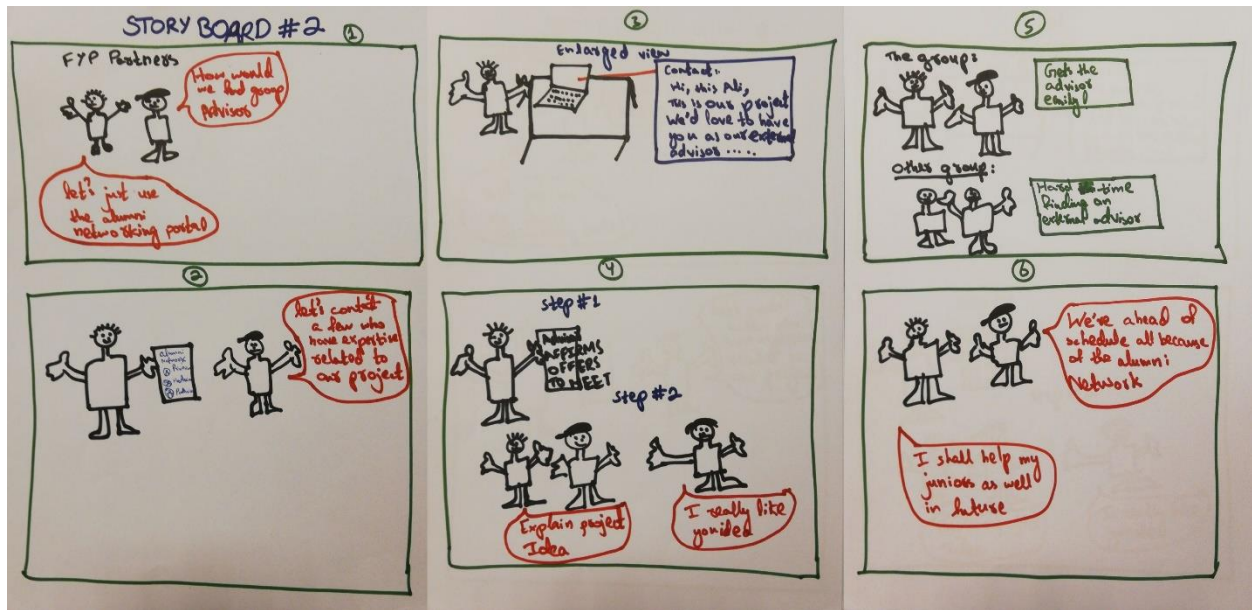 STORY BOARD #2
1
FYP Partners
How would
we find group
Advisor
let's just use
the alumni
networking portal
2
alumni
network
let's contact
a few who
have expertise
related to
our project
3
Enlarged view
Contact:
Hi, this Ali,
This is our project
We'd love to have
you as our external
advisor .....
4
Step #1
AFFIRMS
OFFERS
TO MEET
Step #2
Explain project
Idea
I really like
5
The group:
Gets the
advisor
easily!
Other group:
Hard time
finding an
external advisor
6
We're ahead of
schedule all because
of the alumni
Network
I shall help my
juniors as well
in future